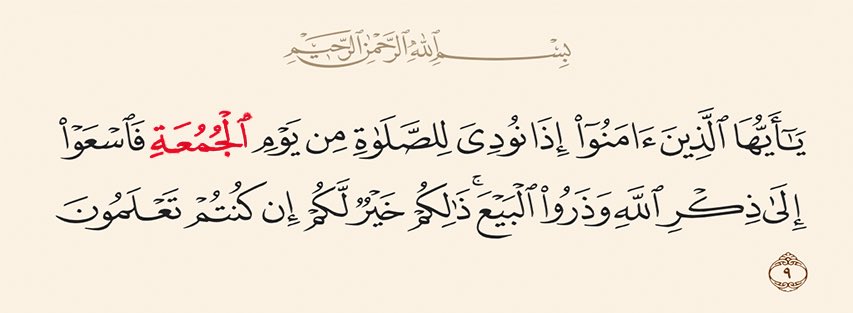 بِسْمِ ٱللَّهِ ٱلرَّحْمَٰنِ ٱلرَّحِيمِ
يَٰٓأَيُّهَا ٱلَّذِينَ ءَامَنُوٓا۟ إِذَا نُودِىَ لِلصَّلَوٰةِ مِن يَوْمِ ٱلْجُمُعَةِ فَٱسْعَوْا۟
إِلَىٰ ذِكْرِ ٱللَّهِ وَذَرُوا۟ ٱلْبَيْعَ ۚ ذَٰلِكُمْ خَيْرٌ لَّكُمْ إِن كُنتُمْ تَعْلَمُونَ
٩